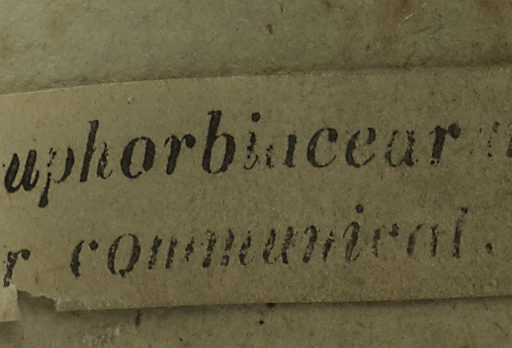 uphorbiacear
r communical.